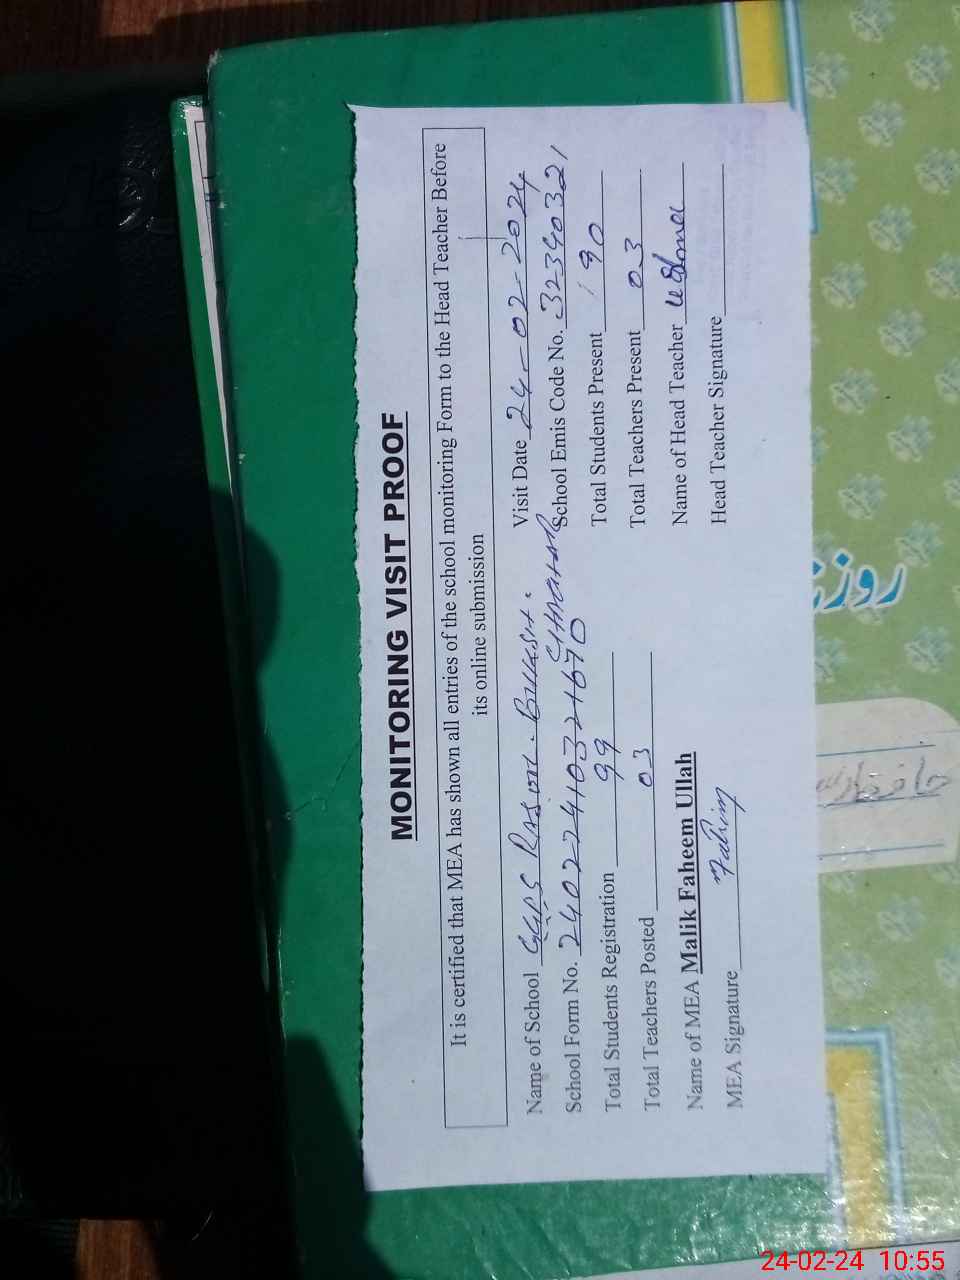 MONITORING VISIT PROOF
It is certified that MEA has shown all entries of the school monitoring Form to the Head Teacher Before
its online submission
Name of School GGPS Rasool Bukhsh Visit Date 24-02-2024
School Form No. 24022241032 1670 School Emis Code No. 32340321
Total Students Registration 99 Total Students Present 90
Total Teachers Posted 03 Total Teachers Present 03
Name of MEA Malik Faheem Ullah Name of Head Teacher
MEA Signature Fahim Head Teacher Signature
روزنا
24-02-24 10:55